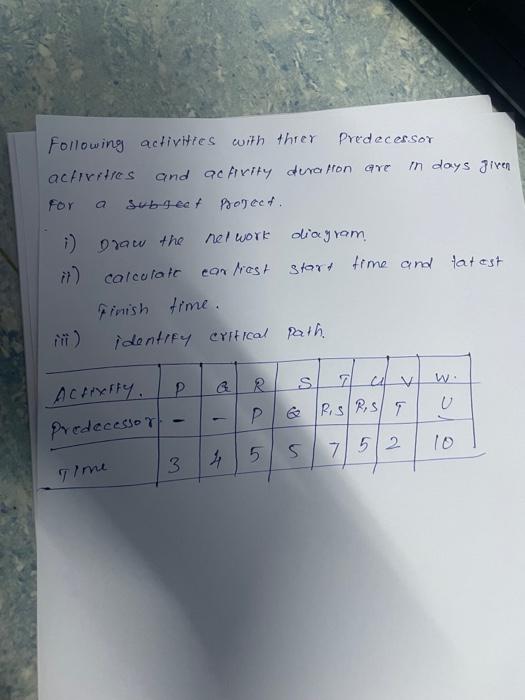 Following activities with thier Predecessor
activities and activity duration are in days given
For a subject Project.
i) Draw the network diagram.
ii) calculate earliest start time and latest
Finish time.
iii) identify critical Path.
Activity. P Q R S T U V W.
Predecessor - - P Q R,S R,S T U
Time 3 4 5 5 7 5 2 10